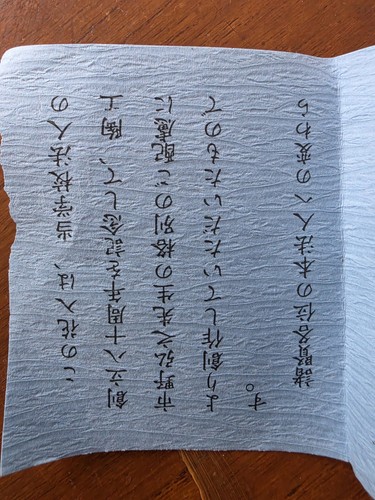 この花入は、当学校法人の
創立八十周年を記念して、陶工
市野弘之先生の格別のご配慮に
より創作していただいたもので
す。
諸賢各位の本法人への変わら